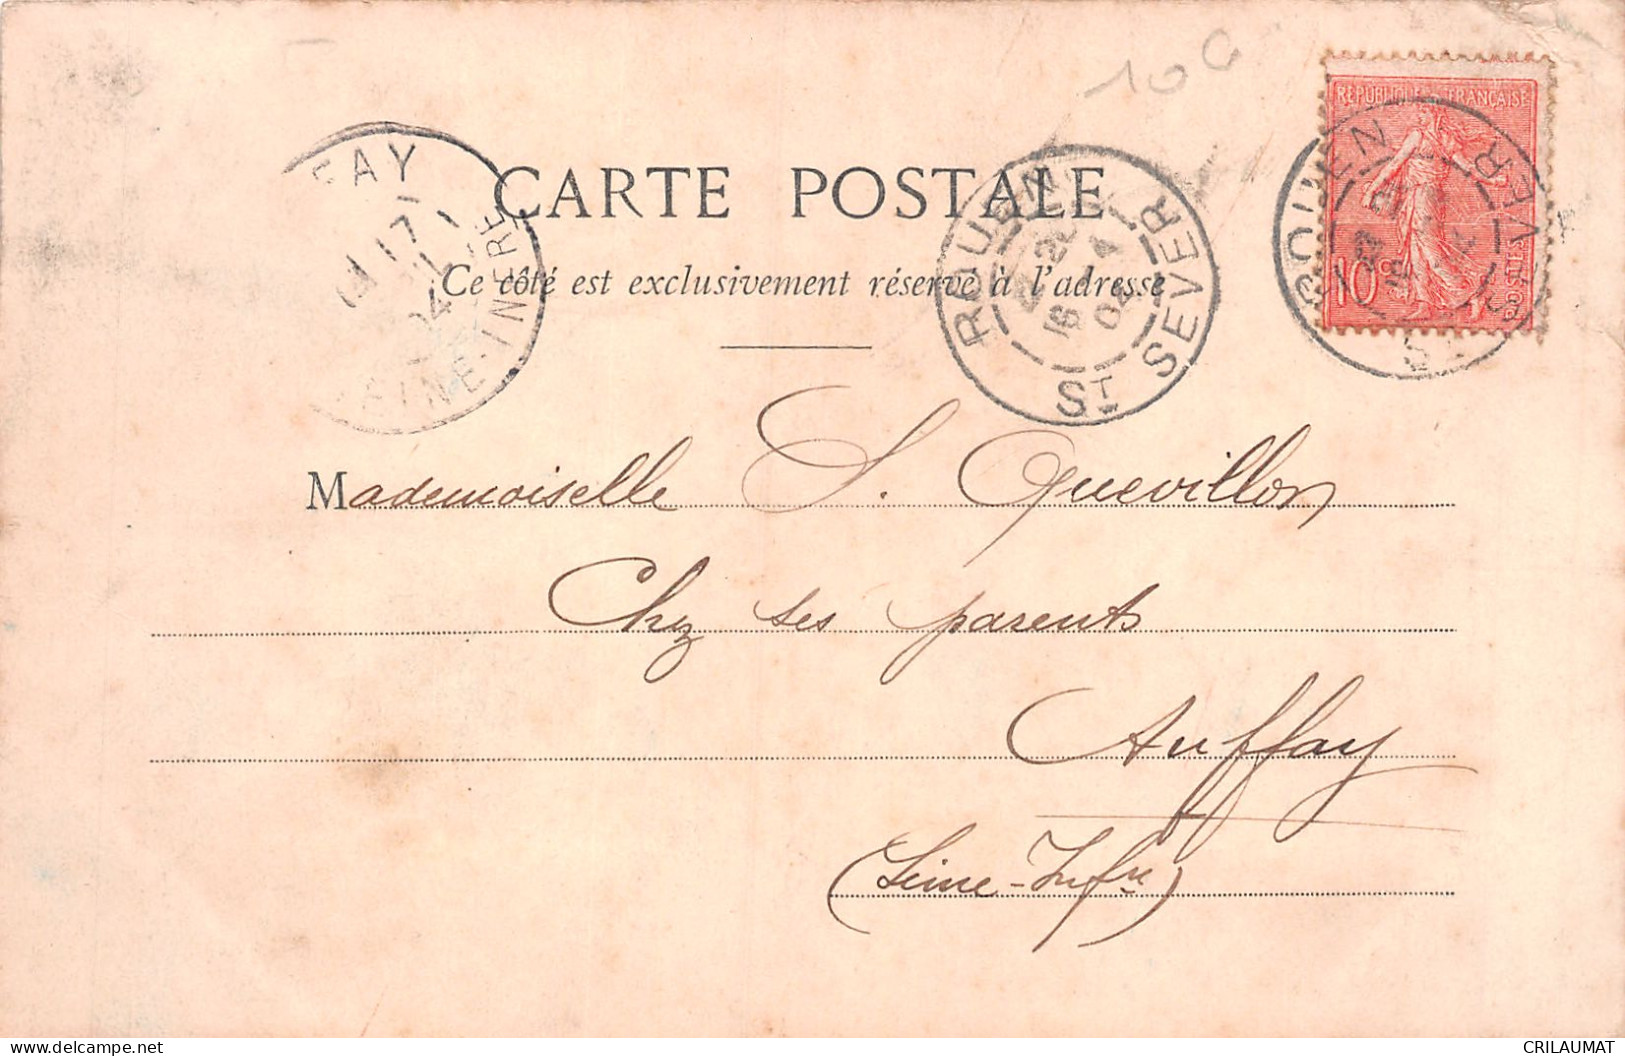 10 c
REPUBLIQUE FRANÇAISE
10c POSTES
ROUEN
ST SEVER
ROUEN
ST SEVER
16 04
FAY
17
04
SEINE-INFRE
CARTE POSTALE
Ce côté est exclusivement réservé à l'adresse
Mademoiselle S. Quevillon
Chez ses parents
Auffay
(Seine-Infre)
CRILAUMAT